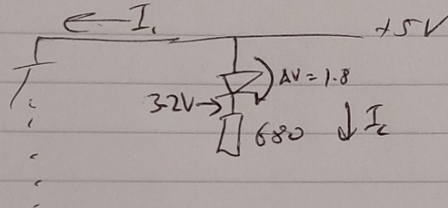 ← I₁
+5V
ΔV = 1.8
3.2V →
680 ↓ I₂